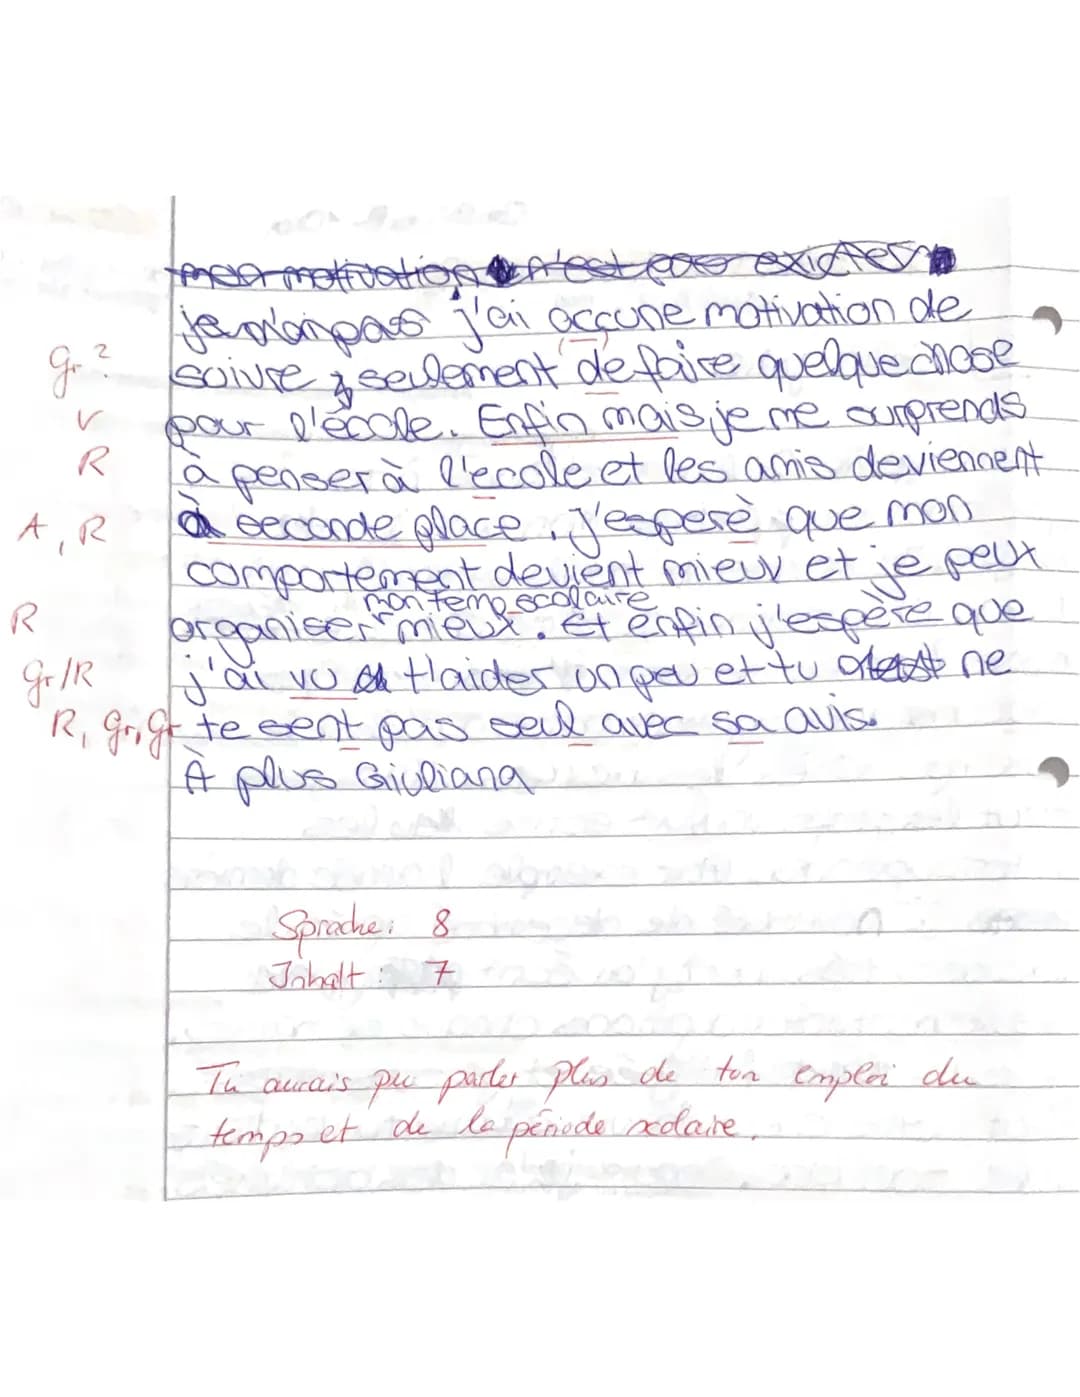 j'ai accune motivation de
Gr.? suivre, seulement de faire quelque chose
V pour l'école. Enfin mais, je me surprends
R à penser à l'ecole et les amis deviennent
A, R à seconde place. J'esperè que mon
comportement devient mieux et je peux
mon temp scolaire
R organiser mieux. Et enfin j'espère que
Gr/R j'ai vu t'laider un peu et tu ne
R, Gr, Gr te sent pas seul avec sa avis.
À plus Giuliana
Sprache: 8
Inhalt: 7
Tu aurais pu parler plus de ton emploi du
temps et de la période scolaire.